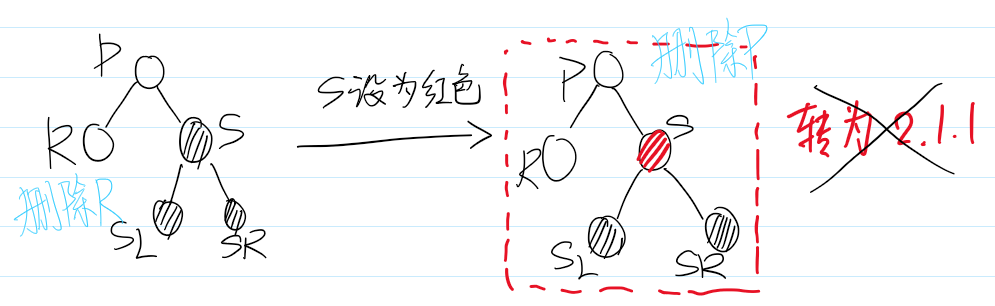 P
R
S
删除R
SL
SR
S设为红色
删除P
P
R
S
SL
SR
转为2.1.1